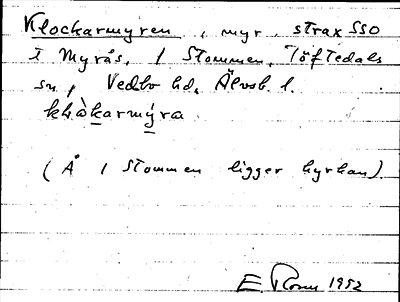 Klockarmyren, myr, strax SSO
t Myrås, 1 Stommen, Töftedals
sn, Vedbo hd, Älvsb. l.
klåkarmýra.
(Å 1 Stommen ligger kyrkan).
E. 1952